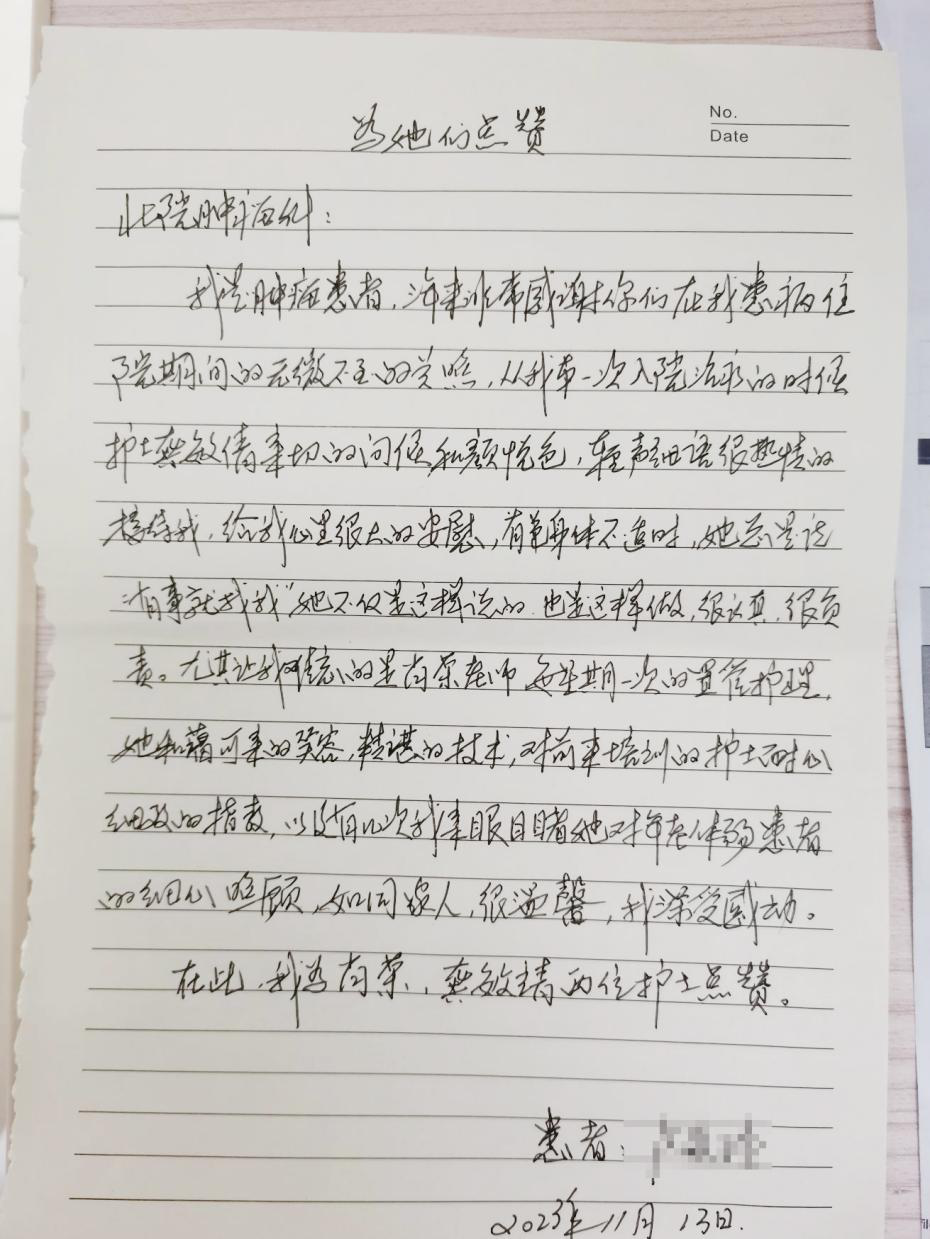 No.
Date
为她们点赞
北院肿瘤科:
我是肿瘤患者,近年来非常感谢你们在我患病住
院期间的无微不至的关照,从我第一次入院治疗的时候
护士龚敏倩亲切的问候和颜悦色,轻声细语很热情的
接待我,给我心里很大的安慰,有色身体不适时,她总是说
"有事就找我"她不仅是这样说的.也是这样做,很认真.很负
责。尤其让我难忘的是肖荣老师每星期一次的置管护理,
她和蔼可亲的笑容,精湛的技术,对前来培训的护士耐心
细致的指教,以及有几次我亲眼目睹她对年老体弱患者
的细心照顾,如同家人,很温馨,我深受感动。
在此,我为肖荣、龚敏倩两位护士点赞。
患者:
2023年11月13日.